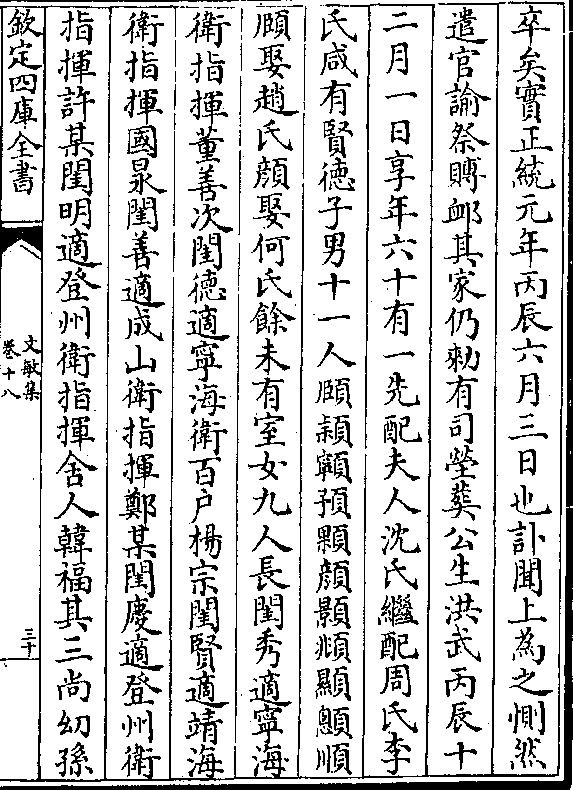 卒矣實正統元年丙辰六月三日也訃聞上為之惻然
遣官諭祭賻䘏其家仍勅有司塋葬公生洪武丙辰十
二月一日享年六十有一先配夫人沈氏繼配周氏李
氏咸有賢德子男十一人頤頴顜預顆顔顥頫顯顩順
頤娶趙氏顔娶何氏餘未有室女九人長閨秀適寧海
衛指揮董善次閨德適寧海衛百户楊宗閨賢適靖海
衛指揮國泉閨善適成山衛指揮鄭某閨慶適登州衛
指揮許某閨明適登州衛指揮舍人韓福其三尚幼孫
欽定四庫全書
文敏集
卷十八
三十